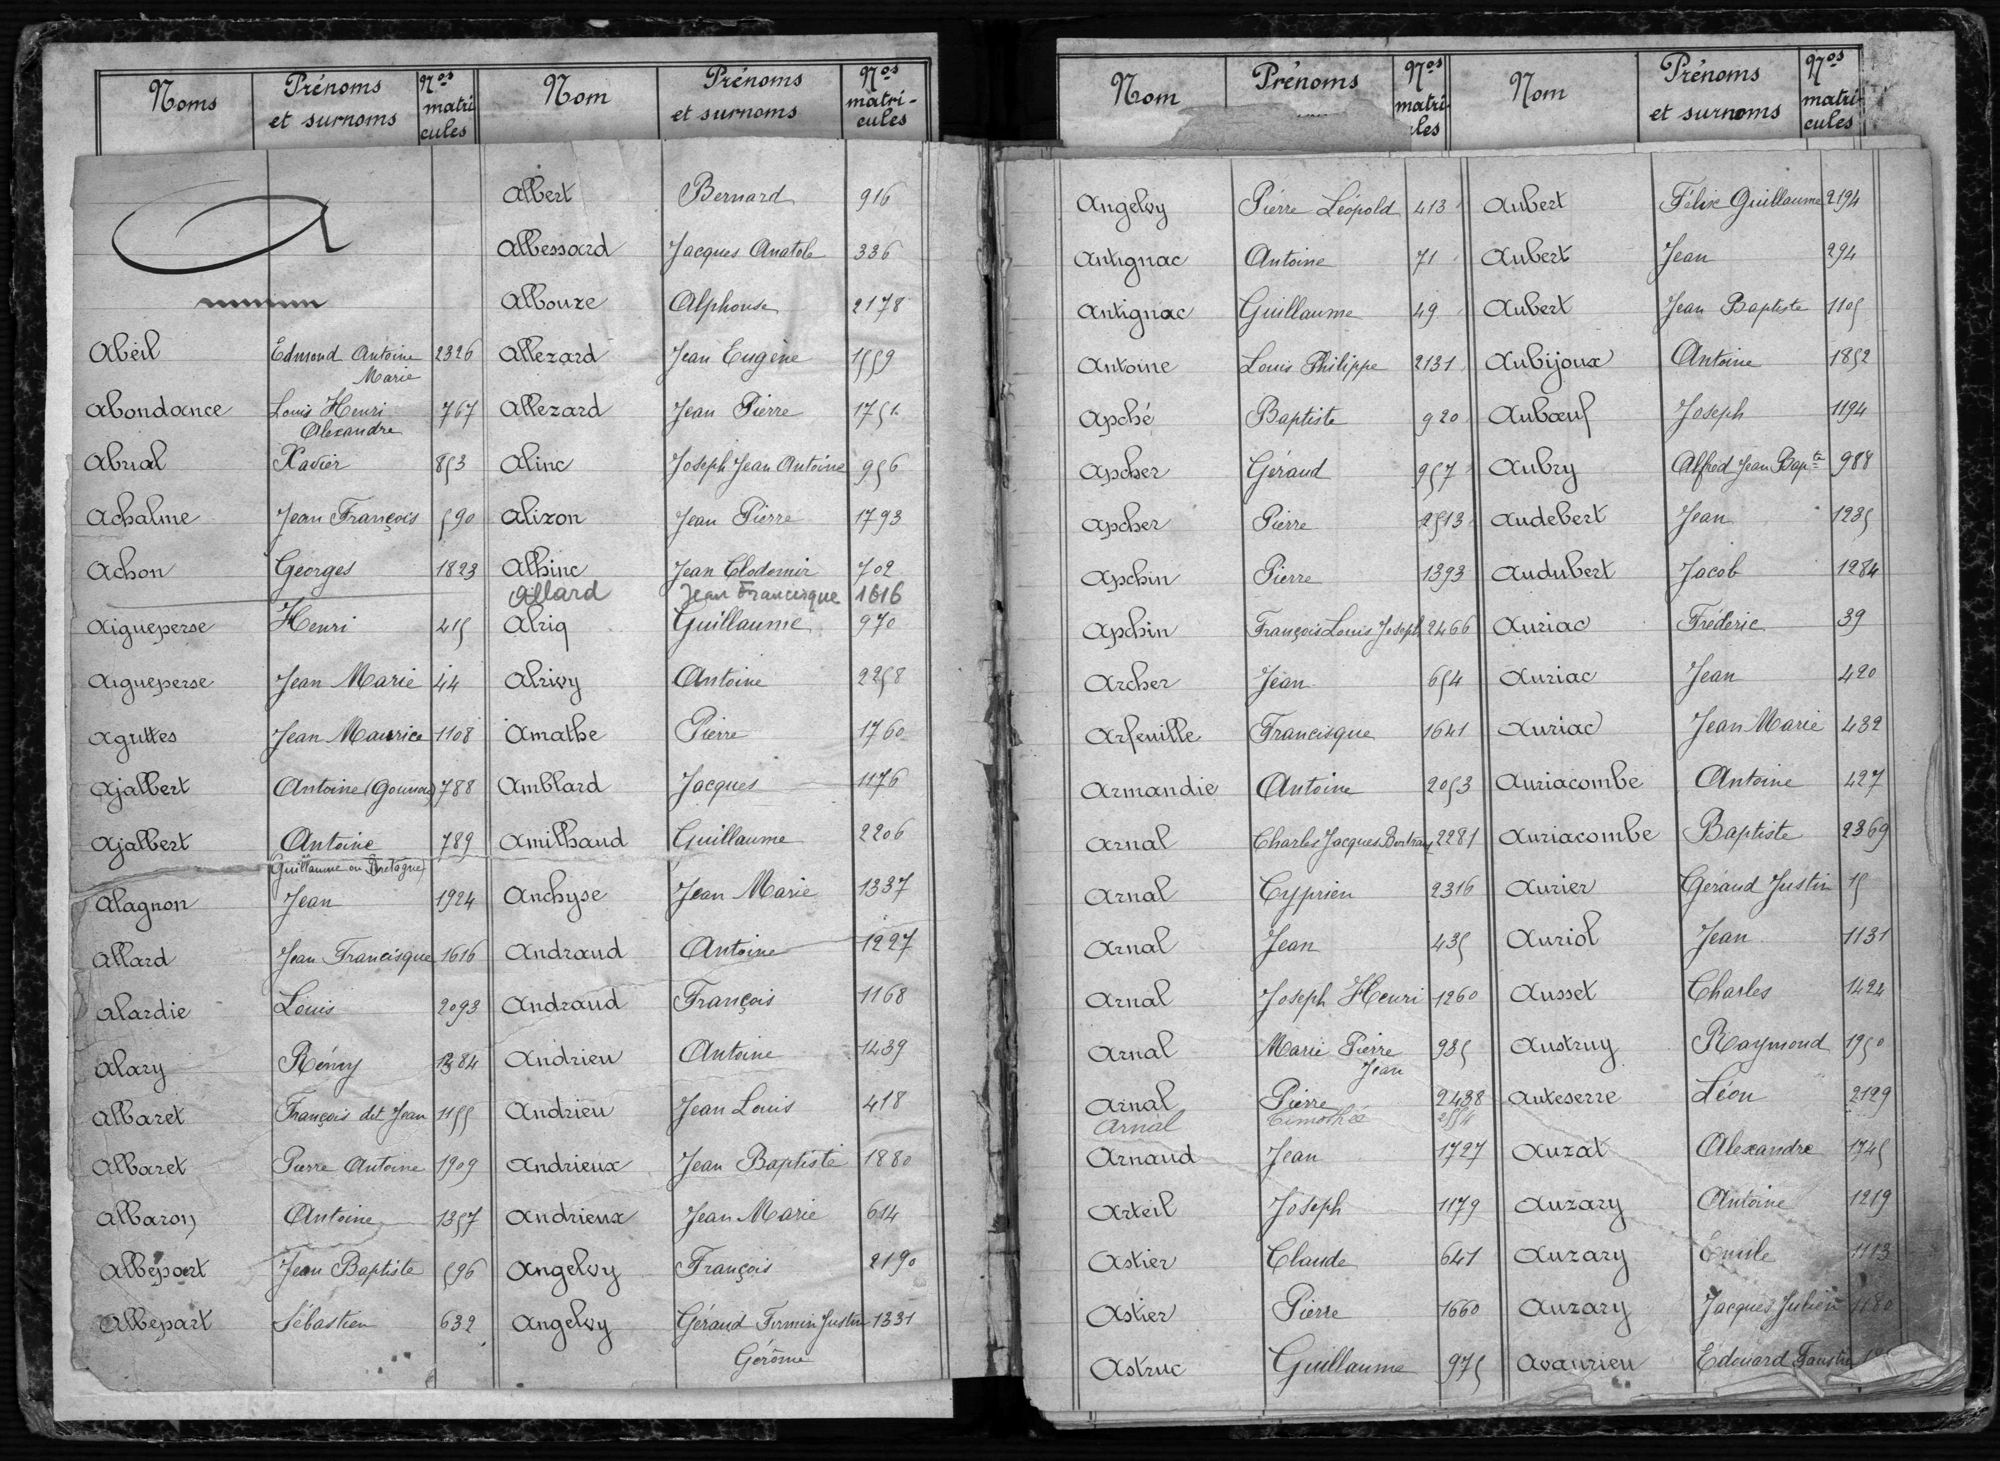 Noms Prénoms et surnoms Nos matricules Nom Prénoms et surnoms Nos matri-cules
A
Abeil Edmond Antoine Marie 2326
Abondance Louis Henri Alexandre 767
Abrial Xavier 853
Achalme Jean François 590
Achon Georges 1823
Aigueperse Henri 215
Aigueperse Jean Marie 44
Aguttes Jean Maurice 1108
Ajalbert Antoine 788
Ajalbert Antoine 789
Guillaume ou Bretagne)
Alagnon Jean 1924
Allard Jean Francisque 1616
Alardie Louis 2093
Alary Rémy 1384
Albaret François dit Jean 1155
Albaret Pierre Antoine 1909
Albaron Antoine 1357
Albepart Jean Baptiste 596
Albepart Sébastien 632
Albert Bernard 916
Albessard Jacques Anatole 336
Albouze Alphonse 2178
Alezard Jean Eugène 1559
Alezard Jean Pierre 1751
Alinc Joseph Jean Antoine 956
Alizon Jean Pierre 1793
Alhinc Jean Clodomir 702
Allard Jean Francisque 1616
Alriq Guillaume 970
Alrivy Antoine 2258
Amathe Pierre 1760
Amblard Jacques 1176
Amilhaud Guillaume 2206
Anchyse Jean Marie 1337
Andraud Antoine 1227
Andraud François 1168
Andrieu Antoine 1439
Andrieu Jean Louis 418
Andrieux Jean Baptiste 1880
Andrieux Jean Marie 614
Angelvy François 2190
Angelvy Géraud Firmin Justin 1331
Gérôme
Nom Prénoms Nos matri-cules Nom Prénoms et surnoms Nos matri-cules
Angelvy Pierre Léopold 413
Antignac Antoine 71
Antignac Guillaume 49
Antoine Louis Philippe 2131
Apché Baptiste 920
Apcher Géraud 957
Apcher Pierre 2513
Apchin Pierre 1393
Apchin François Louis Joseph 2466
Archer Jean 654
Arfeuille Francisque 1641
Armandie Antoine 2053
Arnal Charles Jacques Bertrand 2281
Arnal Cyprien 2316
Arnal Jean 435
Arnal Joseph Henri 1260
Arnal Marie Pierre Jean 935
Arnal Pierre 2438
Arnal Timothée 2554
Arnaud Jean 1727
Arteil Joseph 1179
Astier Claude 641
Astier Pierre 1660
Astruc Guillaume 975
Aubert Félix Guillaume 2194
Aubert Jean 294
Aubert Jean Baptiste 1105
Aubijoux Antoine 1852
Aubœuf Joseph 1194
Aubry Alfred Jean Bapte 988
Audebert Jean 1235
Audubert Jacob 1284
Auriac Fréderic 39
Auriac Jean 420
Auriac Jean Marie 432
Auriacombe Antoine 427
Auriacombe Baptiste 2369
Aurier Géraud Justin 15
Auriol Jean 1131
Ausset Charles 1424
Austruy Raymond 1950
Auteserre Léon 2129
Auzat Alexandre 1745
Auzary Antoine 1219
Auzary Emile 1113
Auzary Jacques Julien 1180
Avaurieu Edouard